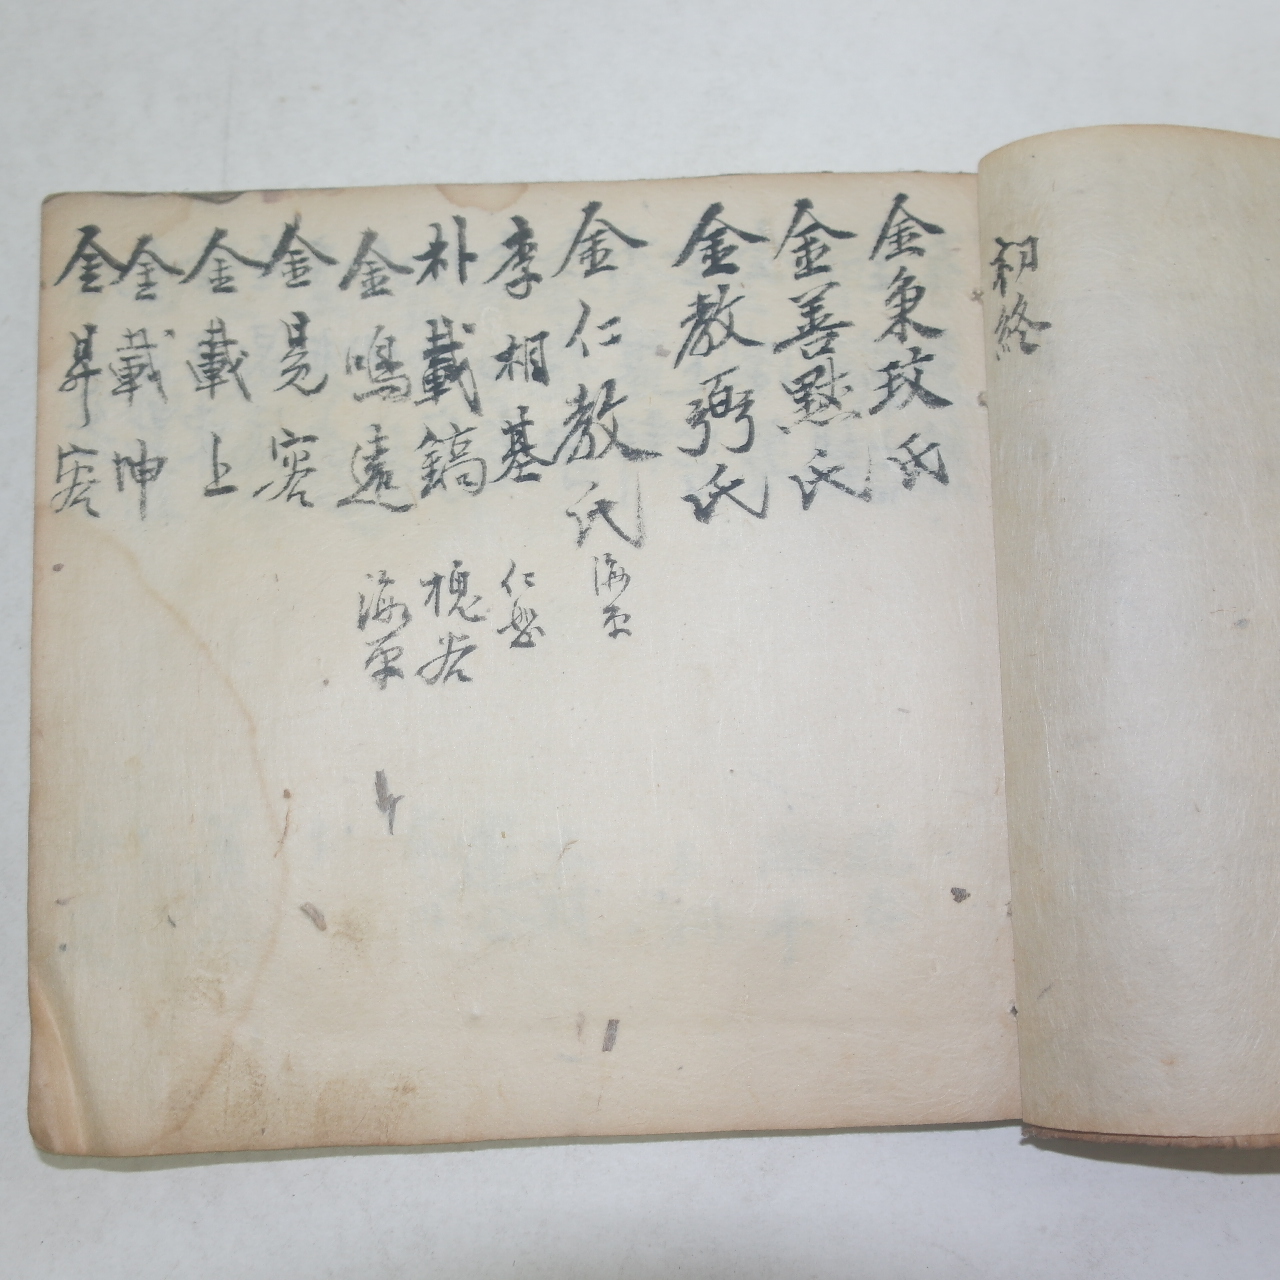 初終
金秉玟氏
金善黙氏
金教弼氏
金仁教氏 海平
李相基 仁
朴載鎬 槐谷
金鳴遠 海平
金晃容
金載上
金載坤
金昇容